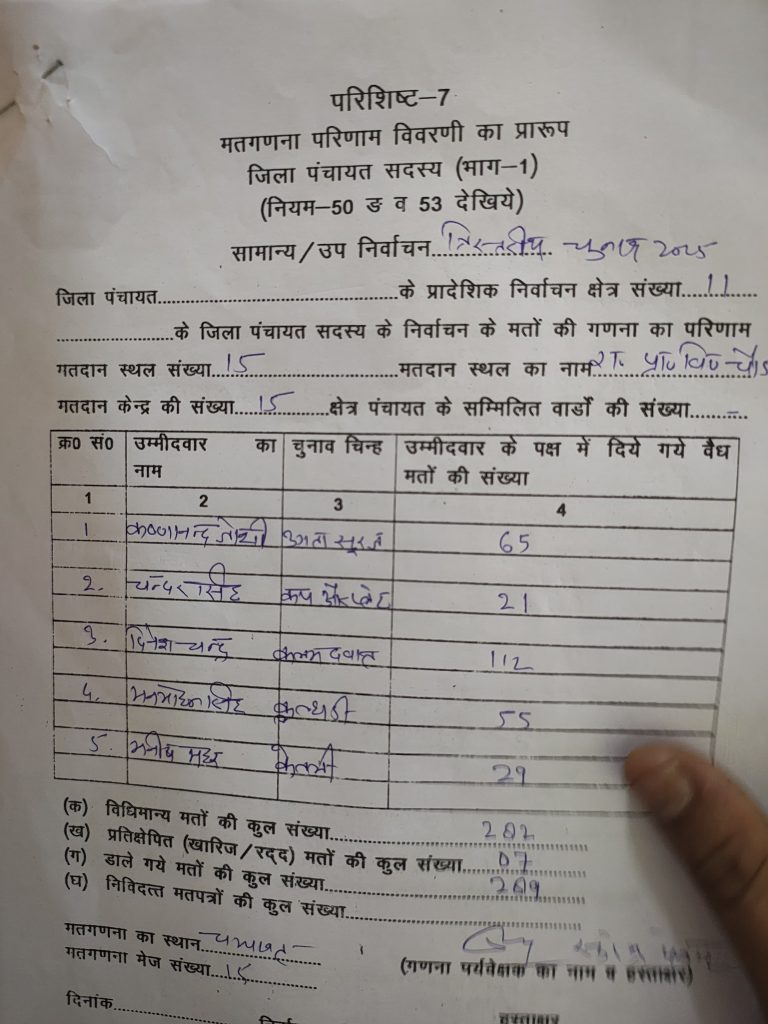 परिशिष्ट–7
मतगणना परिणाम विवरणी का प्रारूप
जिला पंचायत सदस्य (भाग–1)
(नियम–50 ङ व 53 देखिये)
सामान्य/उप निर्वाचन त्रिस्तरीय चुनाव 2025
जिला पंचायत..............................के प्रादेशिक निर्वाचन क्षेत्र संख्या....11......
..................के जिला पंचायत सदस्य के निर्वाचन के मतों की गणना का परिणाम
गतदान स्थल संख्या..15..................मतदान स्थल का नाम रा. प्रा० वि०
गतदान केन्द्र की संख्या....15..........क्षेत्र पंचायत के सम्मिलित वार्डो की संख्या.......–
क्र0 सं0 उम्मीदवार का नाम चुनाव चिन्ह उम्मीदवार के पक्ष में दिये गये वैध मतों की संख्या
1 2 3 4
1 कृष्णानन्द जोशी उगता सूरज 65
2. चन्दर सिंह कप और प्लेट 21
3. दिनेश चन्द्र कलम दवात 112
4. मनमोहन सिंह कुल्हाड़ी 55
5. मनीष महर केतली 29
(क) विधिमान्य मतों की कुल संख्या..................282
(ख) प्रतिक्षेपित (खारिज/रद्द) मतों की कुल संख्या.....07
(ग) डाले गये मतों की कुल संख्या..................289
(घ) निविदत्त मतपत्रों की कुल संख्या..................
मतगणना का स्थान चम्पावत
मतगणना मेज संख्या....15
(गणना पर्यवेक्षक का नाम व हस्ताक्षर)
दिनांक..................
हस्ताक्षर